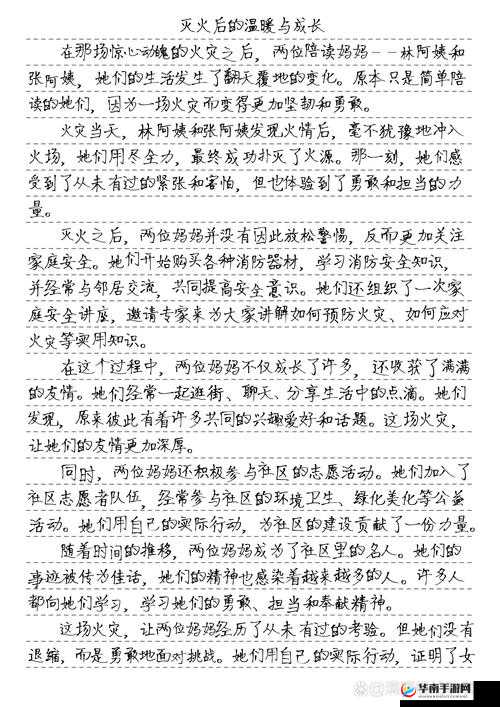 灭火后的温暖与成长
在那场惊心动魄的火灾之后，两位陪读妈妈——林阿姨和
张阿姨，她们的生活发生了翻天覆地的变化。原本只是简单陪
读的她们，因为一场火灾而变得更加坚韧和勇敢。
火灾当天，林阿姨和张阿姨发现火情后，毫不犹豫地冲入
火场，她们用尽全力，最终成功扑灭了火源。那一刻，她们感
受到了从未有过的紧张和害怕，但也体验到了勇敢和担当的力
量。
灭火之后，两位妈妈并没有因此放松警惕，反而更加关注
家庭安全。她们开始购买各种消防器材，学习消防安全知识，
并经常与邻居交流，共同提高安全意识。她们还组织了一次家
庭安全讲座，邀请专家来为大家讲解如何预防火灾、如何应对
火灾等实用知识。
在这个过程中，两位妈妈不仅成长了许多，还收获了满满
的友情。她们经常一起逛街、聊天、分享生活中的点滴。她们
发现，原来彼此有着许多共同的兴趣爱好和话题。这场火灾，
让她们的友情更加深厚。
同时，两位妈妈还积极参与社区的志愿活动。她们加入了
社区志愿者队伍，经常参与社区的环境卫生、绿化美化等公益
活动。她们用自己的实际行动，为社区的建设贡献了一份力量。
随着时间的推移，两位妈妈成为了社区里的名人。她们的
事迹被传为佳话，她们的精神也感染着越来越多的人。许多人
都向她们学习，学习她们的勇敢、担当和奉献精神。
这场火灾，让两位妈妈经历了从未有过的考验。但她们没有
退缩，而是勇敢地面对挑战。她们用自己的实际行动，证明了女
华南手游网